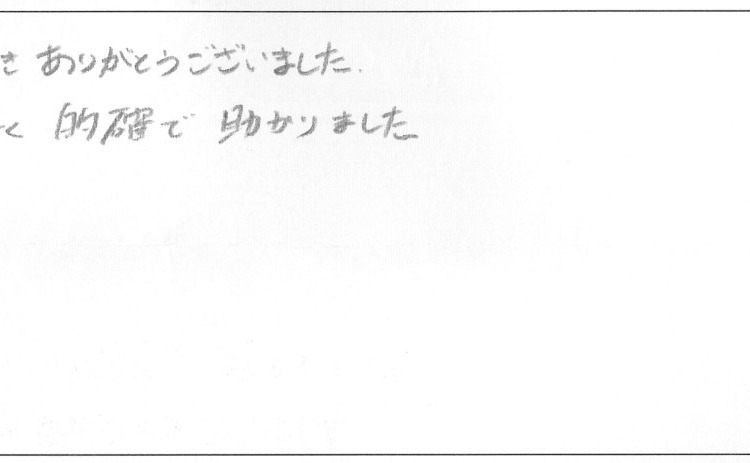 さ ありがとうございました.
く 的確で 助かりました